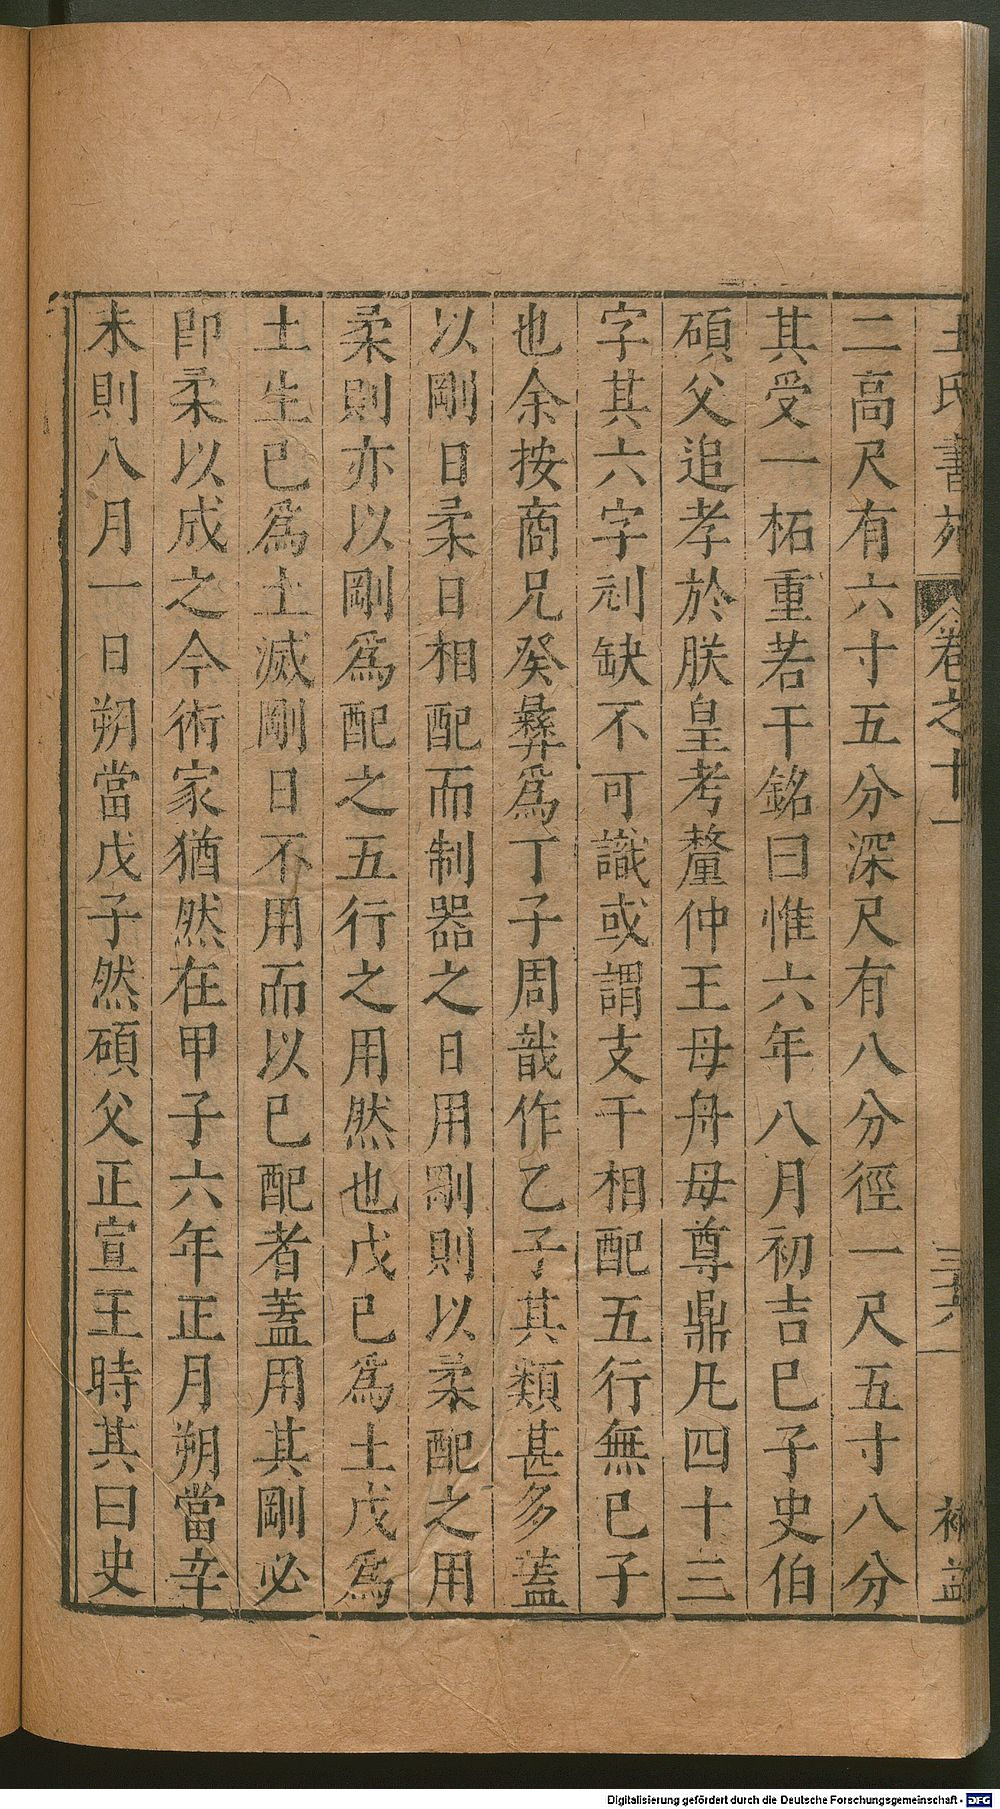 王氏書苑 卷之十一 三六 補益
二高尺有六寸五分深尺有八分徑一尺五寸八分
其受一柘重若干銘曰惟六年八月初吉巳子史伯
碩父追孝於朕皇考釐仲王母舟母尊鼎凡四十三
字其六字刓缺不可識或謂支干相配五行無巳子
也余按商兄癸彝爲丁子周戠作乙子其類甚多蓋
以剛日柔日相配而制器之日用剛則以柔配之用
柔則亦以剛爲配之五行之用然也戊巳爲土戊爲
土生巳爲土滅剛日不用而以巳配者蓋用其剛必
卽柔以成之今術家猶然在甲子六年正月朔當辛
未則八月一日朔當戊子然碩父正宣王時其曰史
Digitalisierung gefördert durch die Deutsche Forschungsgemeinschaft - DFG